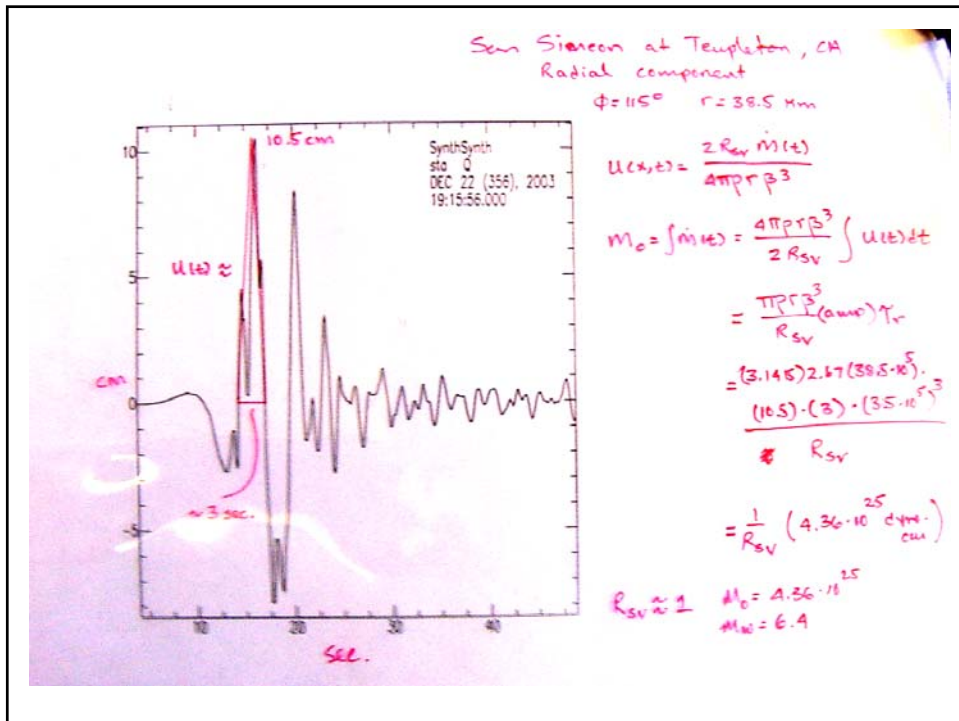 San Simeon at Templeton, CA
Radial component
Φ=115° r=38.5 km
10.5 cm
SynthSynth
sta Q
DEC 22 (356), 2003
19:15:56.000
10
5
0
-5
cm
U(t) ≈
~3 sec.
10 20 30 40
sec.
U(x,t) = 2R_SV Ṁ(t) / 4πρrβ³
M_o = ∫Ṁ(t) = 4πρrβ³ / 2R_SV ∫U(t)dt
= πρrβ³ / R_SV (amp) τ_r
= (3.145) 2.67 (38.5·10⁵)·
(10.5)·(3)·(3.5·10⁵)³
R_SV
= 1/R_SV (4.36·10²⁵ dyne·cm)
R_SV ≈ 1 M_o = 4.36·10²⁵
M_w = 6.4